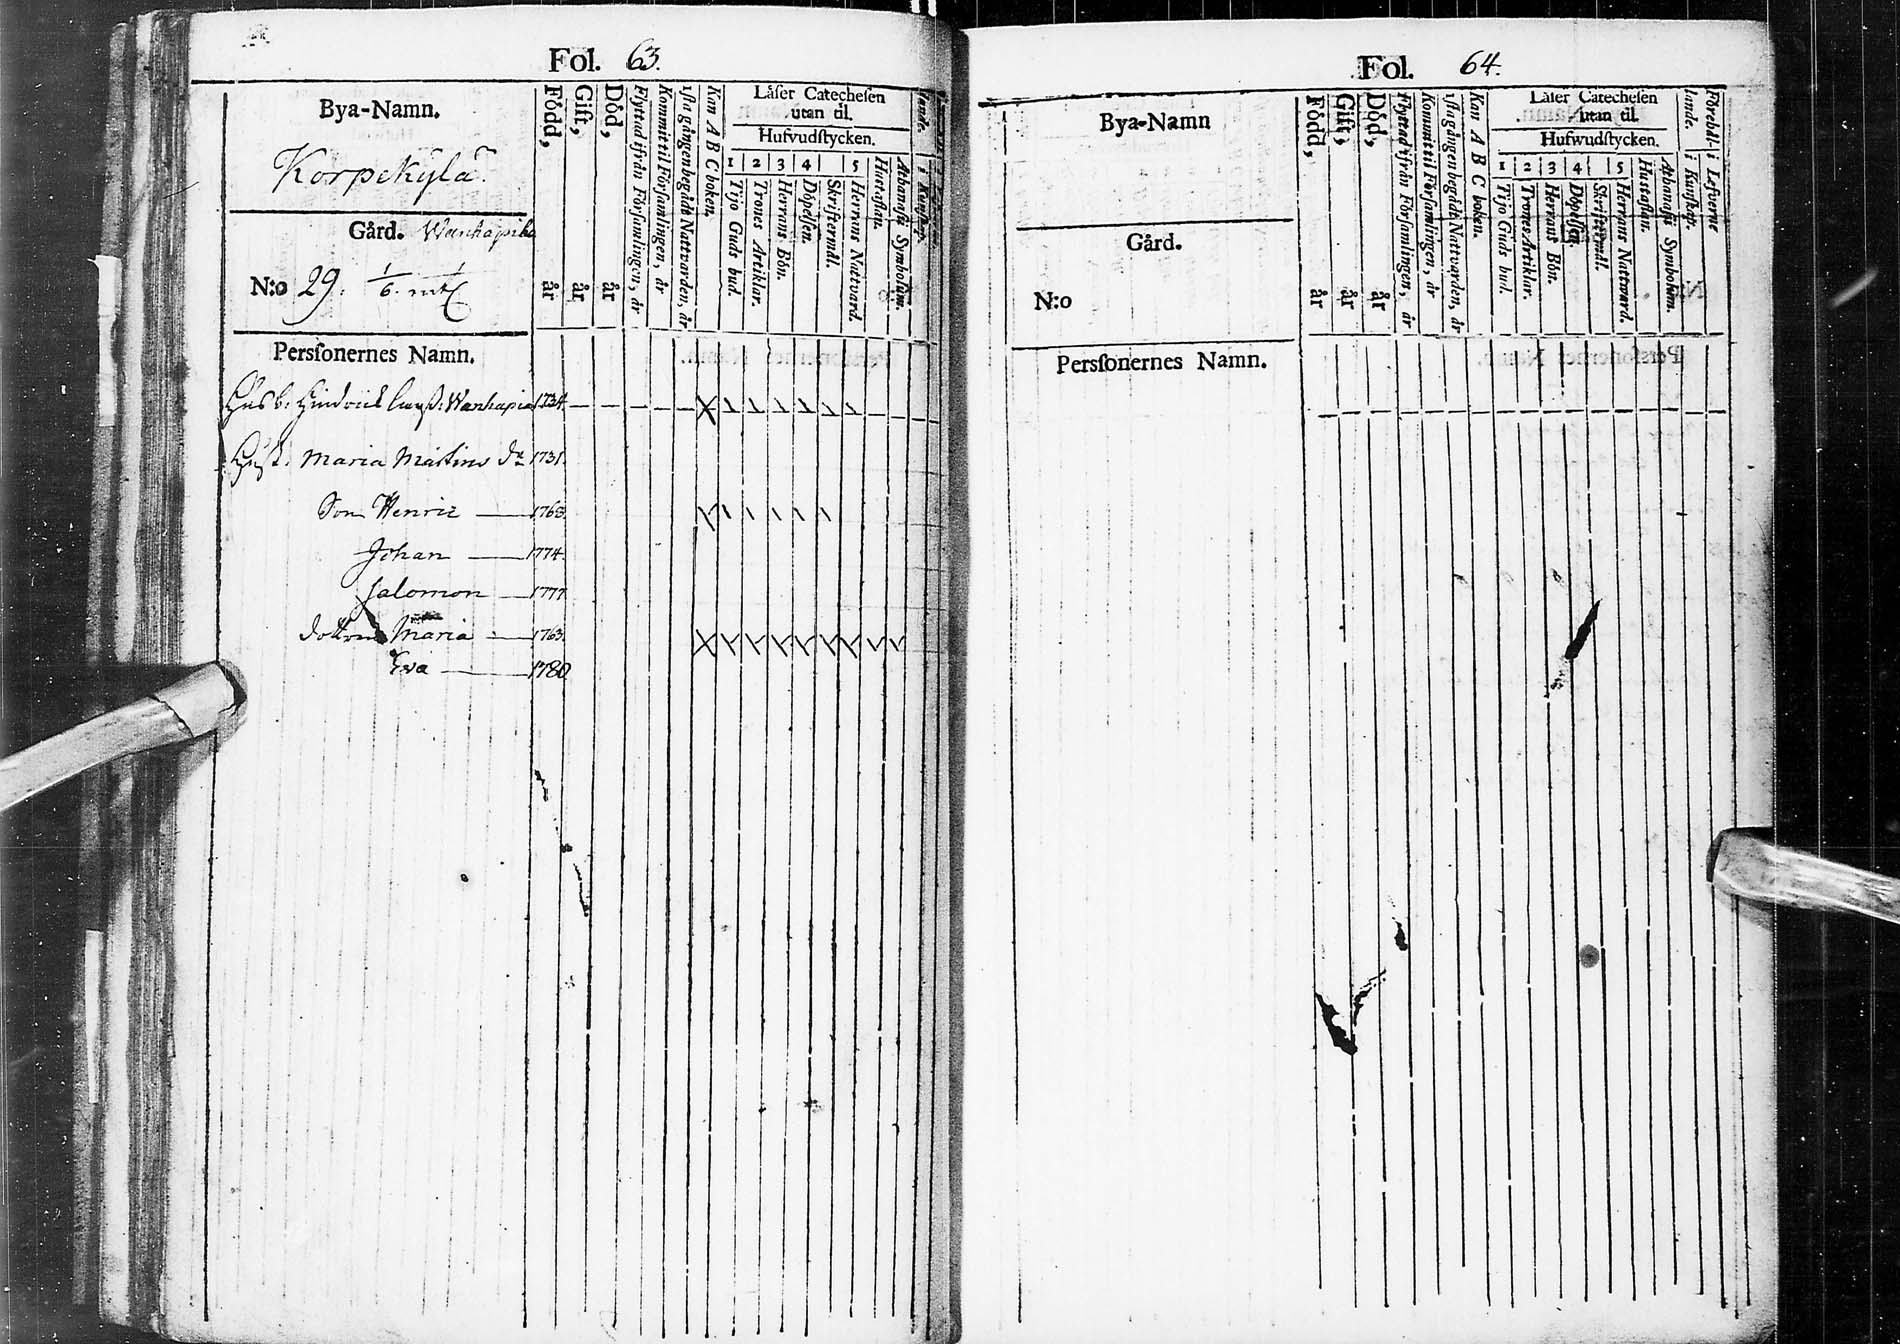 Fol. 63.
Bya-Namn.
Korpekylä.
Gård. Wanhapiha
N:o 29. 1/6. mtl
Född, år
Gift, år
Död, år
Flyttad ifrån Församlingen, år
Kommit til Församlingen, år
1sta gången begådt Nattvarden, år
Kan A B C boken.
Låser Catechesen
utan til.
Hufvudstycken.
1 2 3 4 5
Tijo Guds bud.
Trones Artiklar.
Herrans Bön.
Döpelsen.
Skriftermål.
Herrans Nattvard.
Hustaflan.
Athanasii Symbolum.
i Kunskap.
Personernes Namn.
Husb: Hindrick Wanhapia 1734
Hust: Maria Mårtens dr 1731.
Son Henric 1763.
Johan 1774.
Salomon 1777
dottren Maria 1763.
Eva 1780
Fol. 64.
Bya-Namn
Gård.
N:o
Född, år
Gift, år
Död, år
Flyttad ifrån Församlingen, år
Kommit til Församlingen, år
1sta gången begådt Nattvarden, år
Kan A B C boken.
Låser Catechesen
utan til.
Hufwudstycken.
1 2 3 4 5
Tijo Guds bud.
Trones Artiklar.
Herrans Bön.
Döpelsen.
Skriftermål.
Herrans Nattward.
Hustaflan.
Athanasii Symbolum.
lande. i Kunskap.
Förehål- i Lefverne
Personernes Namn.